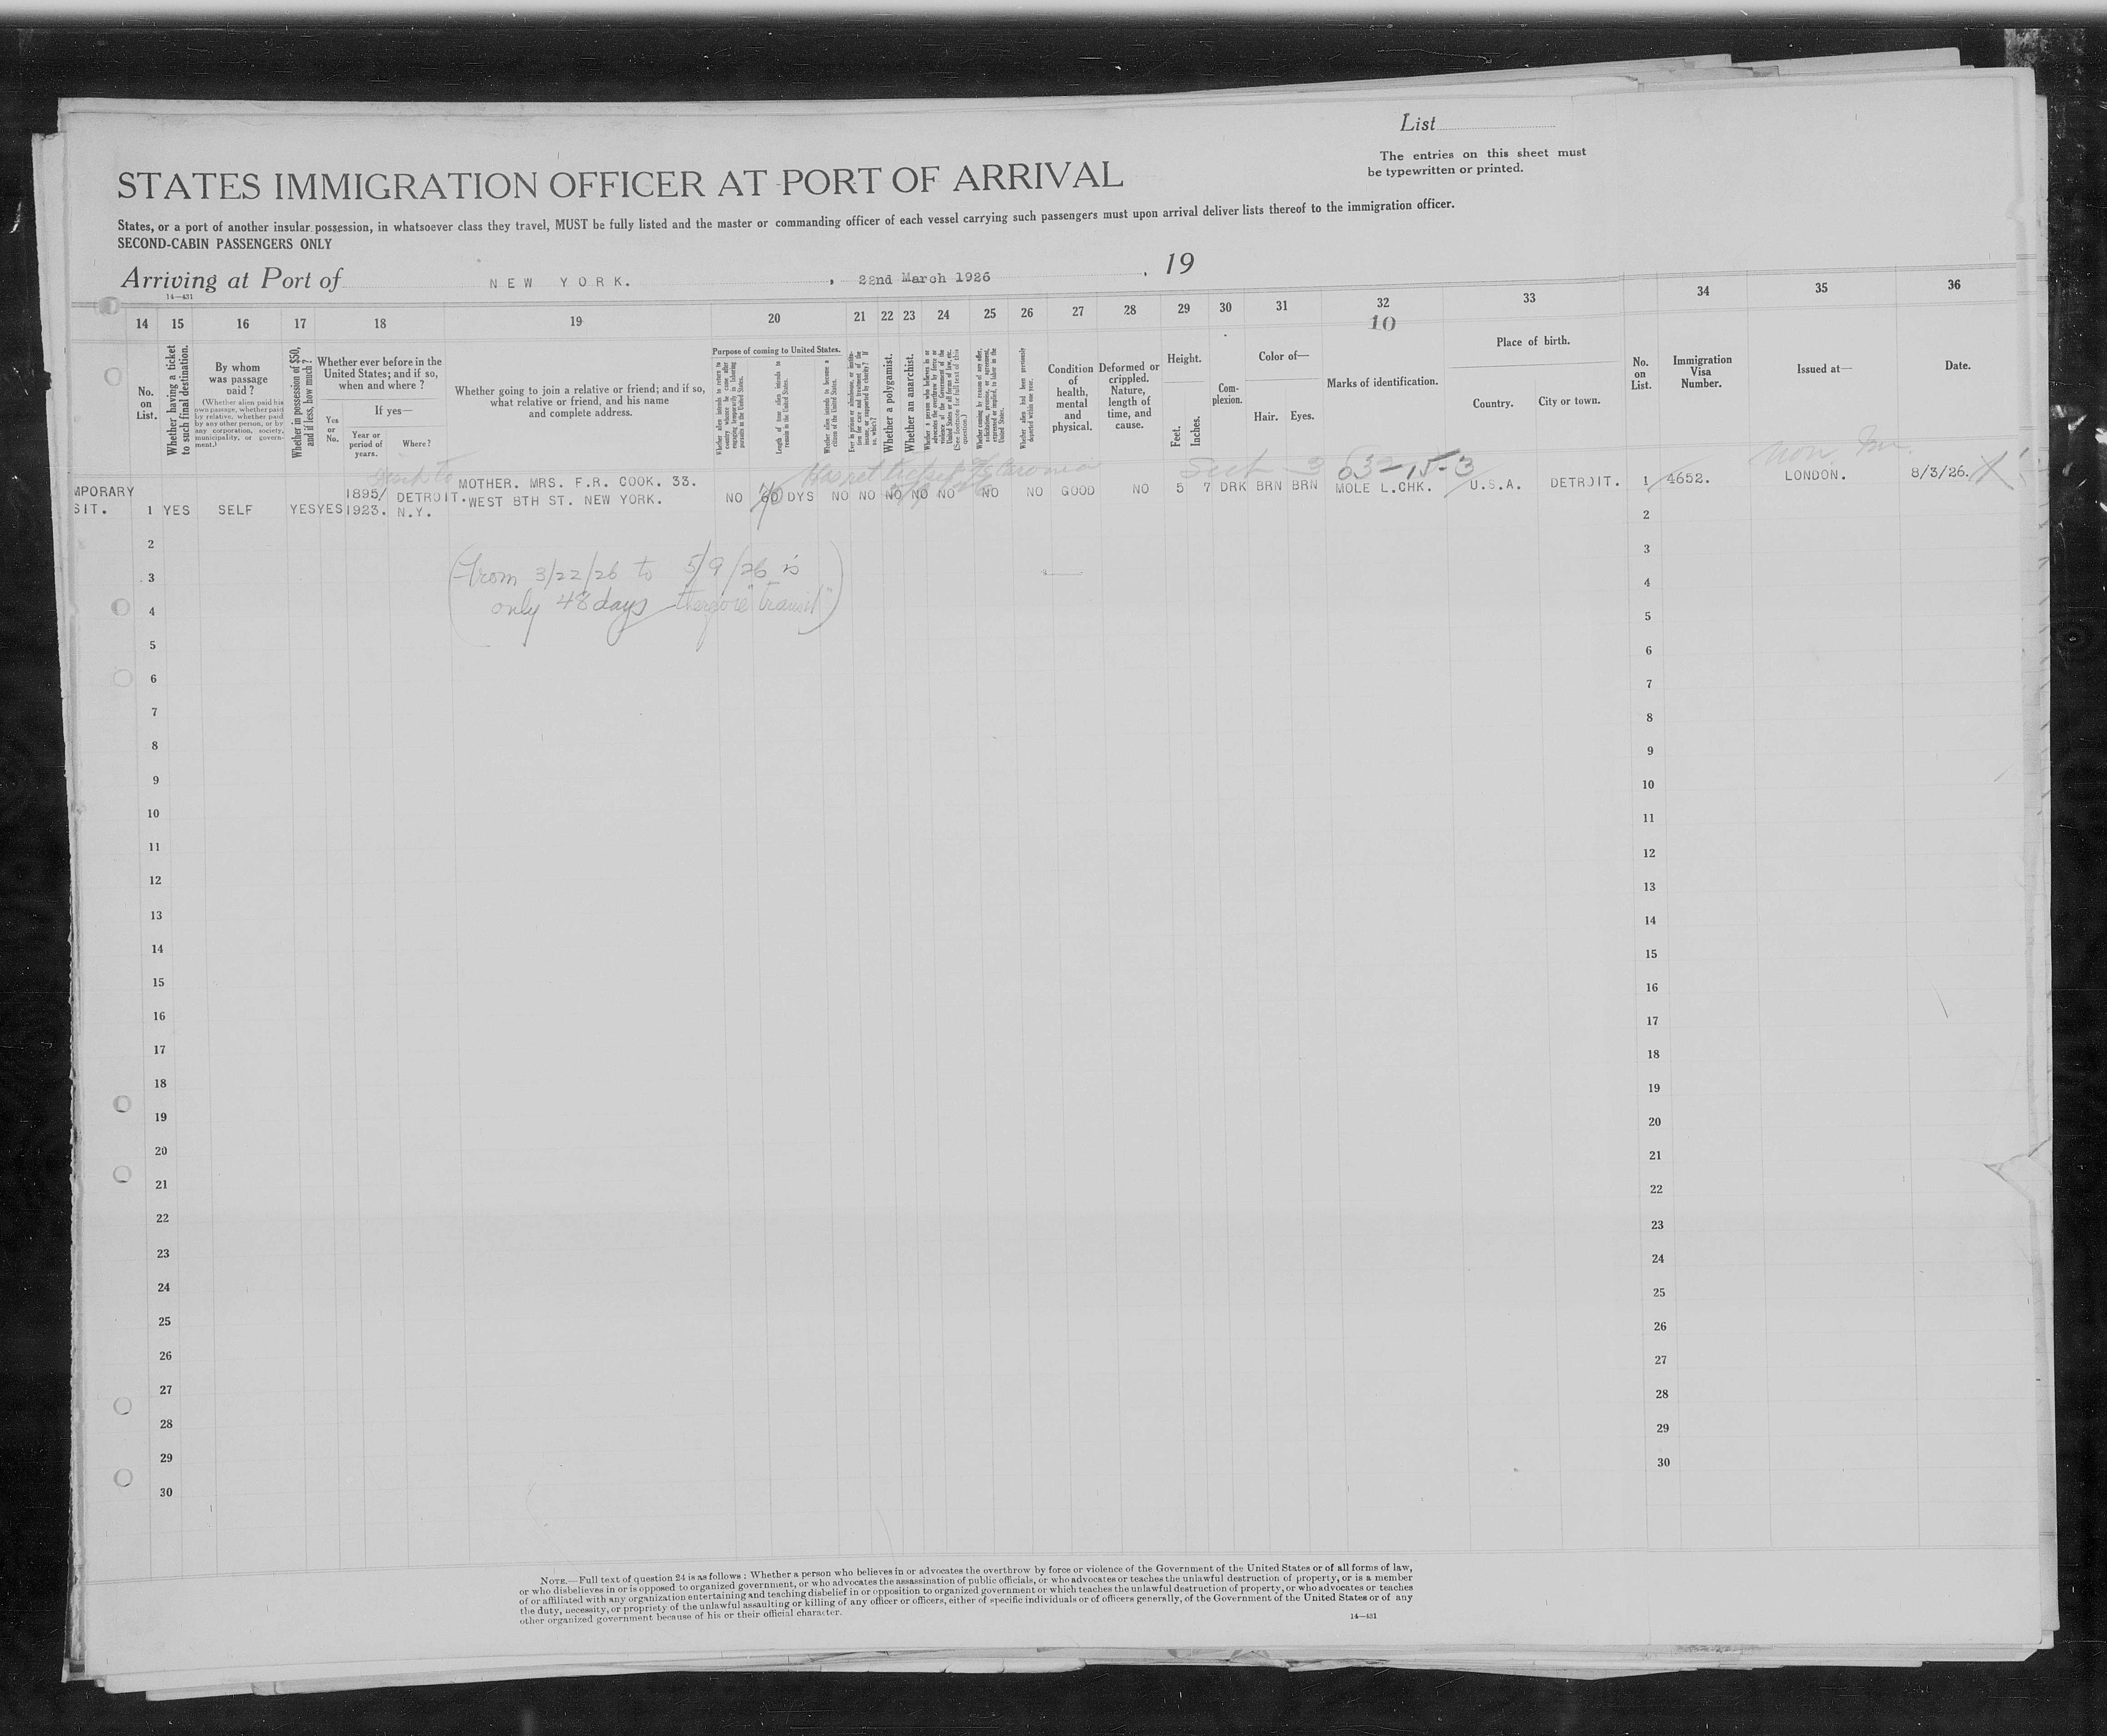 List
The entries on this sheet must
be typewritten or printed.
STATES IMMIGRATION OFFICER AT PORT OF ARRIVAL
States, or a port of another insular possession, in whatsoever class they travel, MUST be fully listed and the master or commanding officer of each vessel carrying such passengers must upon arrival deliver lists thereof to the immigration officer.
SECOND-CABIN PASSENGERS ONLY
Arriving at Port of NEW YORK. , 22nd March 1926 , 19
14—431
14 15 16 17 18 19 20 21 22 23 24 25 26 27 28 29 30 31 32 33 34 35 36
10
No.
on
List.
Whether having a ticket
to such final destination.
By whom
was passage
paid?
(Whether alien paid his
own passage, whether paid
by relative, whether paid
by any other person, or by
any corporation, society,
municipality, or govern-
ment.)
Whether in possession of $50,
and if less, how much?
Whether ever before in the
United States; and if so,
when and where?
Yes
or
No.
If yes—
Year or
period of
years.
Where?
Whether going to join a relative or friend; and if so,
what relative or friend, and his name
and complete address.
Purpose of coming to United States.
Whether alien intends to return to
country whence he came after
engaging temporarily in laboring
pursuits in the United States.
Length of time alien intends to
remain in the United States.
Whether alien intends to become a
citizen of the United States.
Ever in prison or almshouse, or institu-
tion for care and treatment of the
insane, or supported by charity? If
so, which?
Whether a polygamist.
Whether an anarchist.
Whether a person who believes in or
advocates the overthrow by force or
violence of the Government of the
United States or all forms of law, etc.
(See footnote for full text of this
question.)
Whether coming by reason of any offer,
solicitation, promise, or agreement,
expressed or implied, to labor in the
United States.
Whether alien had been previously
deported within one year.
Condition
of
health,
mental
and
physical.
Deformed or
crippled.
Nature,
length of
time, and
cause.
Height.
Feet.
Inches.
Com-
plexion.
Color of—
Hair. Eyes.
Marks of identification.
Place of birth.
Country. City or town.
No.
on
List.
Immigration
Visa
Number.
Issued at—
Date.
Sect 3 632-15-3
Non Im.
MPORARY
SIT.
1 YES SELF YES YES 1895/
1923. DETROIT.
N.Y.
MOTHER. MRS. F.R. COOK. 33.
WEST 8TH ST. NEW YORK.
NO 60 DYS NO NO NO NO NO NO NO GOOD NO 5 7 DRK BRN BRN MOLE L.CHK. U.S.A. DETROIT. 1 4652. LONDON. 8/3/26. X
(From 3/22/26 to 5/9/26 is
only 48 days therefore "transit")
2
3
4
5
6
7
8
9
10
11
12
13
14
15
16
17
18
19
20
21
22
23
24
25
26
27
28
29
30
2
3
4
5
6
7
8
9
10
11
12
13
14
15
16
17
18
19
20
21
22
23
24
25
26
27
28
29
30
NOTE.—Full text of question 24 is as follows: Whether a person who believes in or advocates the overthrow by force or violence of the Government of the United States or of all forms of law,
or who disbelieves in or is opposed to organized government, or who advocates the assassination of public officials, or who advocates or teaches the unlawful destruction of property, or is a member
of or affiliated with any organization entertaining and teaching disbelief in or opposition to organized government or which teaches the unlawful destruction of property, or who advocates or teaches
the duty, necessity, or propriety of the unlawful assaulting or killing of any officer or officers, either of specific individuals or of officers generally, of the Government of the United States or of any
other organized government because of his or their official character.
14—431